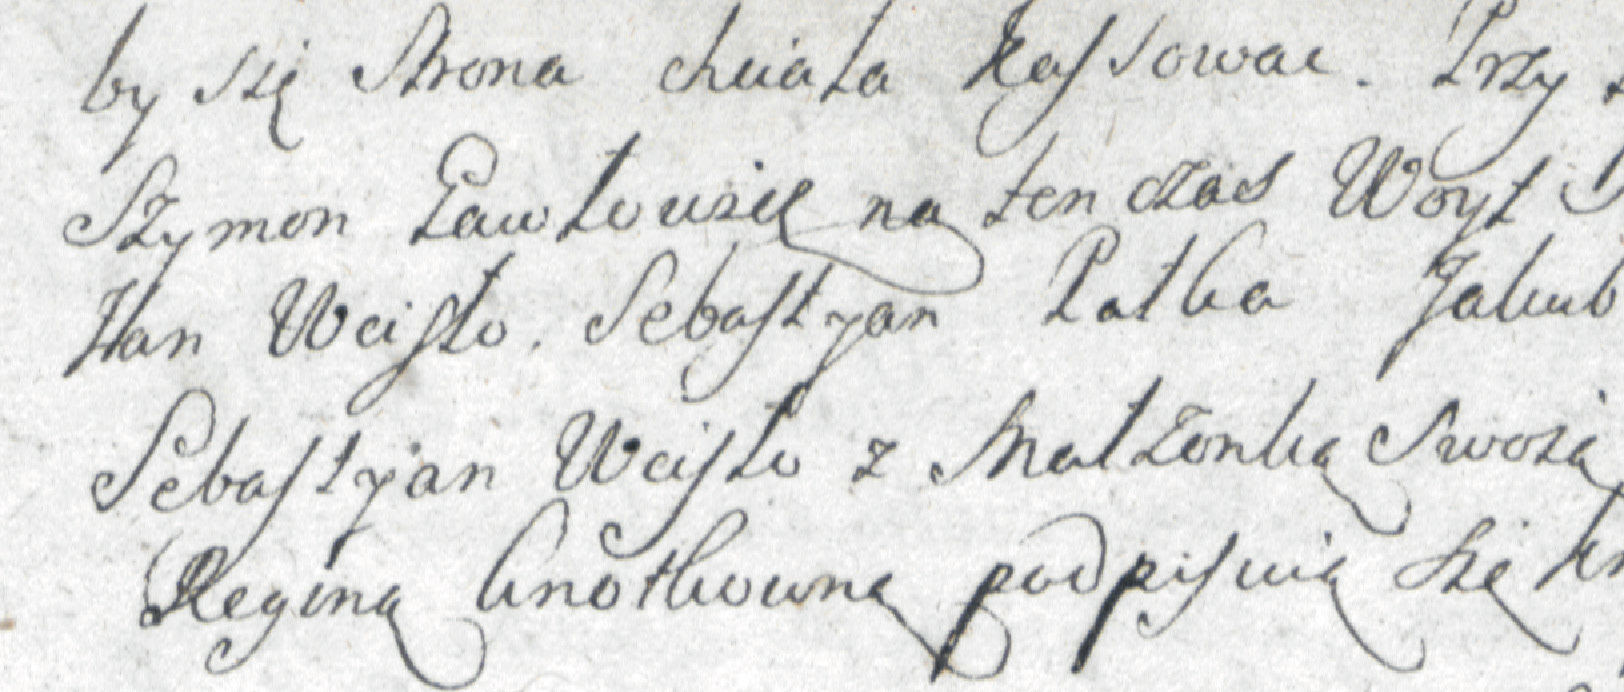 by się Strona chciała Kassować. Przy
Szymon Pawłowski na ten czas Woyt
Jan Wcisło, Sebastyan Patka Jakub
Sebastyan Wcisło z Małżonką Swoią
Reginą Knotkowną podpisuią się